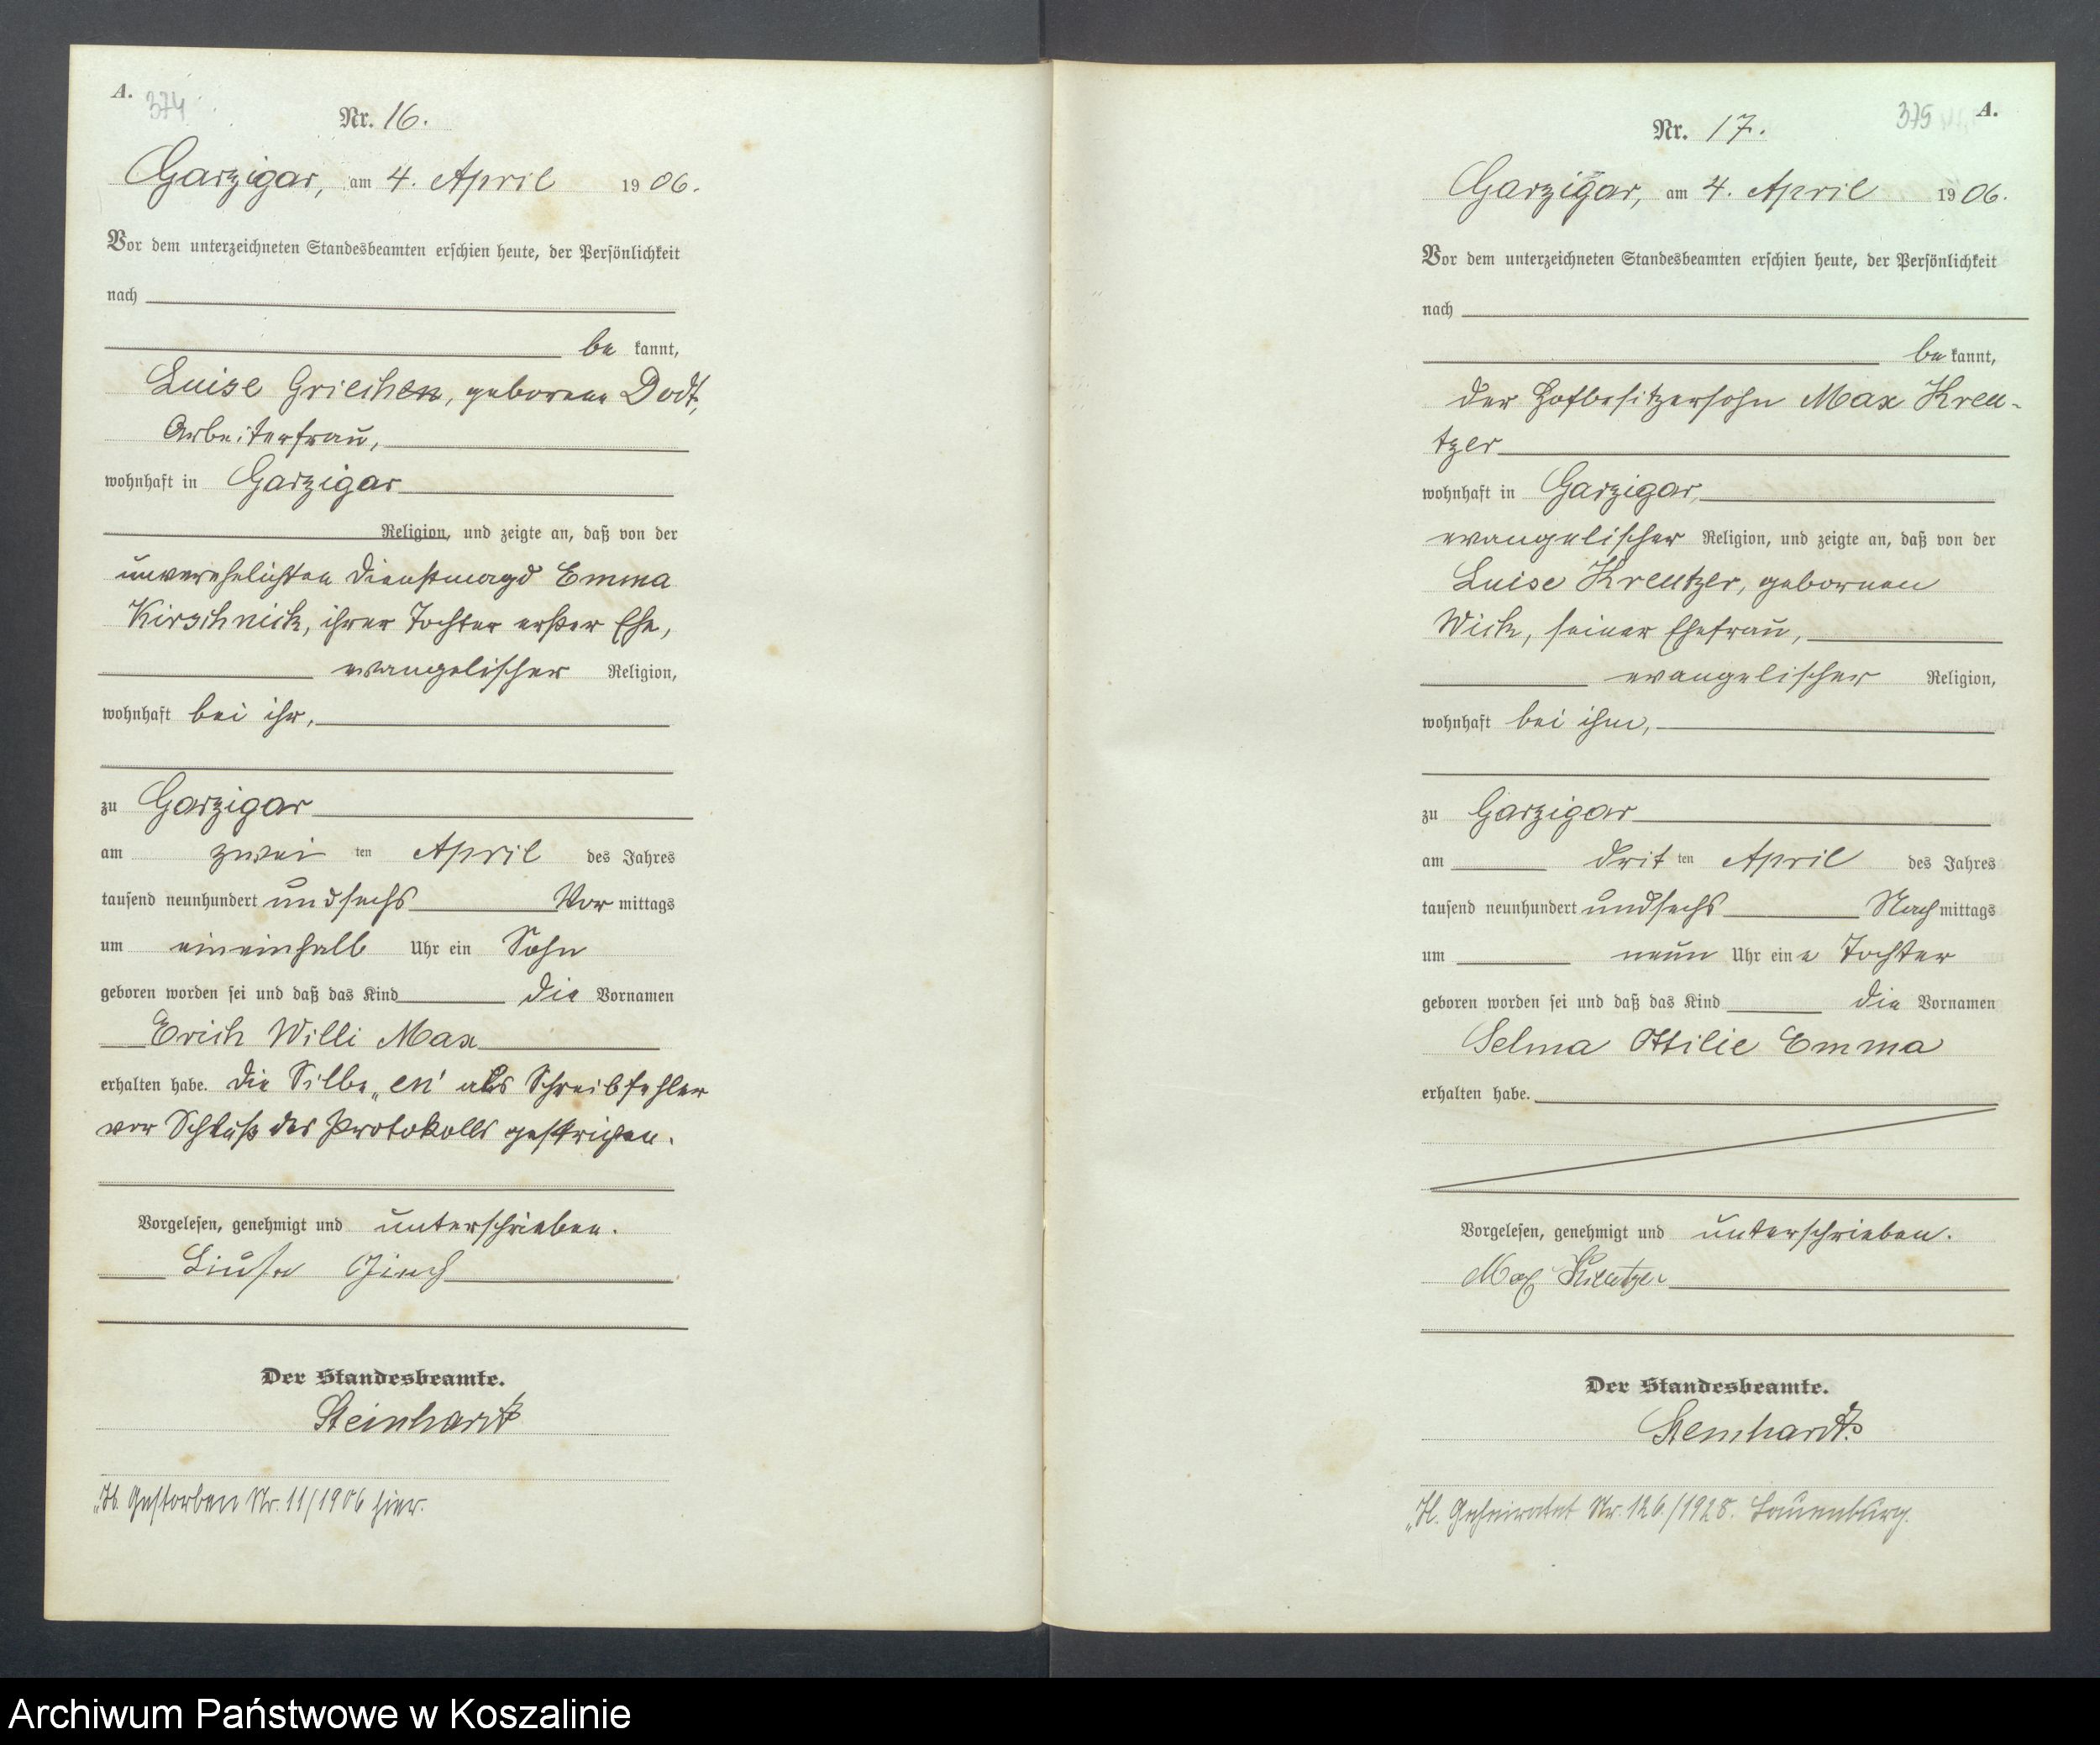 A.
374
Nr. 16.
Garzigar, am 4. April 1906.
Vor dem unterzeichneten Standesbeamten erschien heute, der Persönlichkeit
nach
be kannt,
Luise Griechen, geborene Dodt,
Arbeiterfrau,
wohnhaft in Garzigar
Religion, und zeigte an, daß von der
unverehelichten Dienstmagd Emma
Kirschnick, ihrer Tochter erster Ehe,
evangelischer Religion,
wohnhaft bei ihr,
zu Garzigar
am zwei ten April des Jahres
tausend neunhundert undsechs Vor mittags
um eineinhalb Uhr ein Sohn
geboren worden sei und daß das Kind die Vornamen
Erich Willi Max
erhalten habe. Die Silbe „en“ als Schreibfehler
vor Schluß des Protokolls gestrichen.
Vorgelesen, genehmigt und unterschrieben.
Der Standesbeamte.
Steinhardt
H. Gestorben Nr. 11/1906 hier.
375
A.
Nr. 17.
Garzigar, am 4. April 1906.
Vor dem unterzeichneten Standesbeamten erschien heute, der Persönlichkeit
nach
be kannt,
der Hofbesitzersohn Max Kreu-
tzer
wohnhaft in Garzigar,
evangelischer Religion, und zeigte an, daß von der
Luise Kreutzer, gebornen
Wick, seiner Ehefrau,
evangelischer Religion,
wohnhaft bei ihm,
zu Garzigar
am drit ten April des Jahres
tausend neunhundert undsechs Nach mittags
um neun Uhr eine Tochter
geboren worden sei und daß das Kind die Vornamen
Selma Ottilie Emma
erhalten habe.
Vorgelesen, genehmigt und unterschrieben.
Max Kreutzer
Der Standesbeamte.
Steinhardt
H. Geheiratet Nr. 126/1928. Lauenburg.
Archiwum Państwowe w Koszalinie